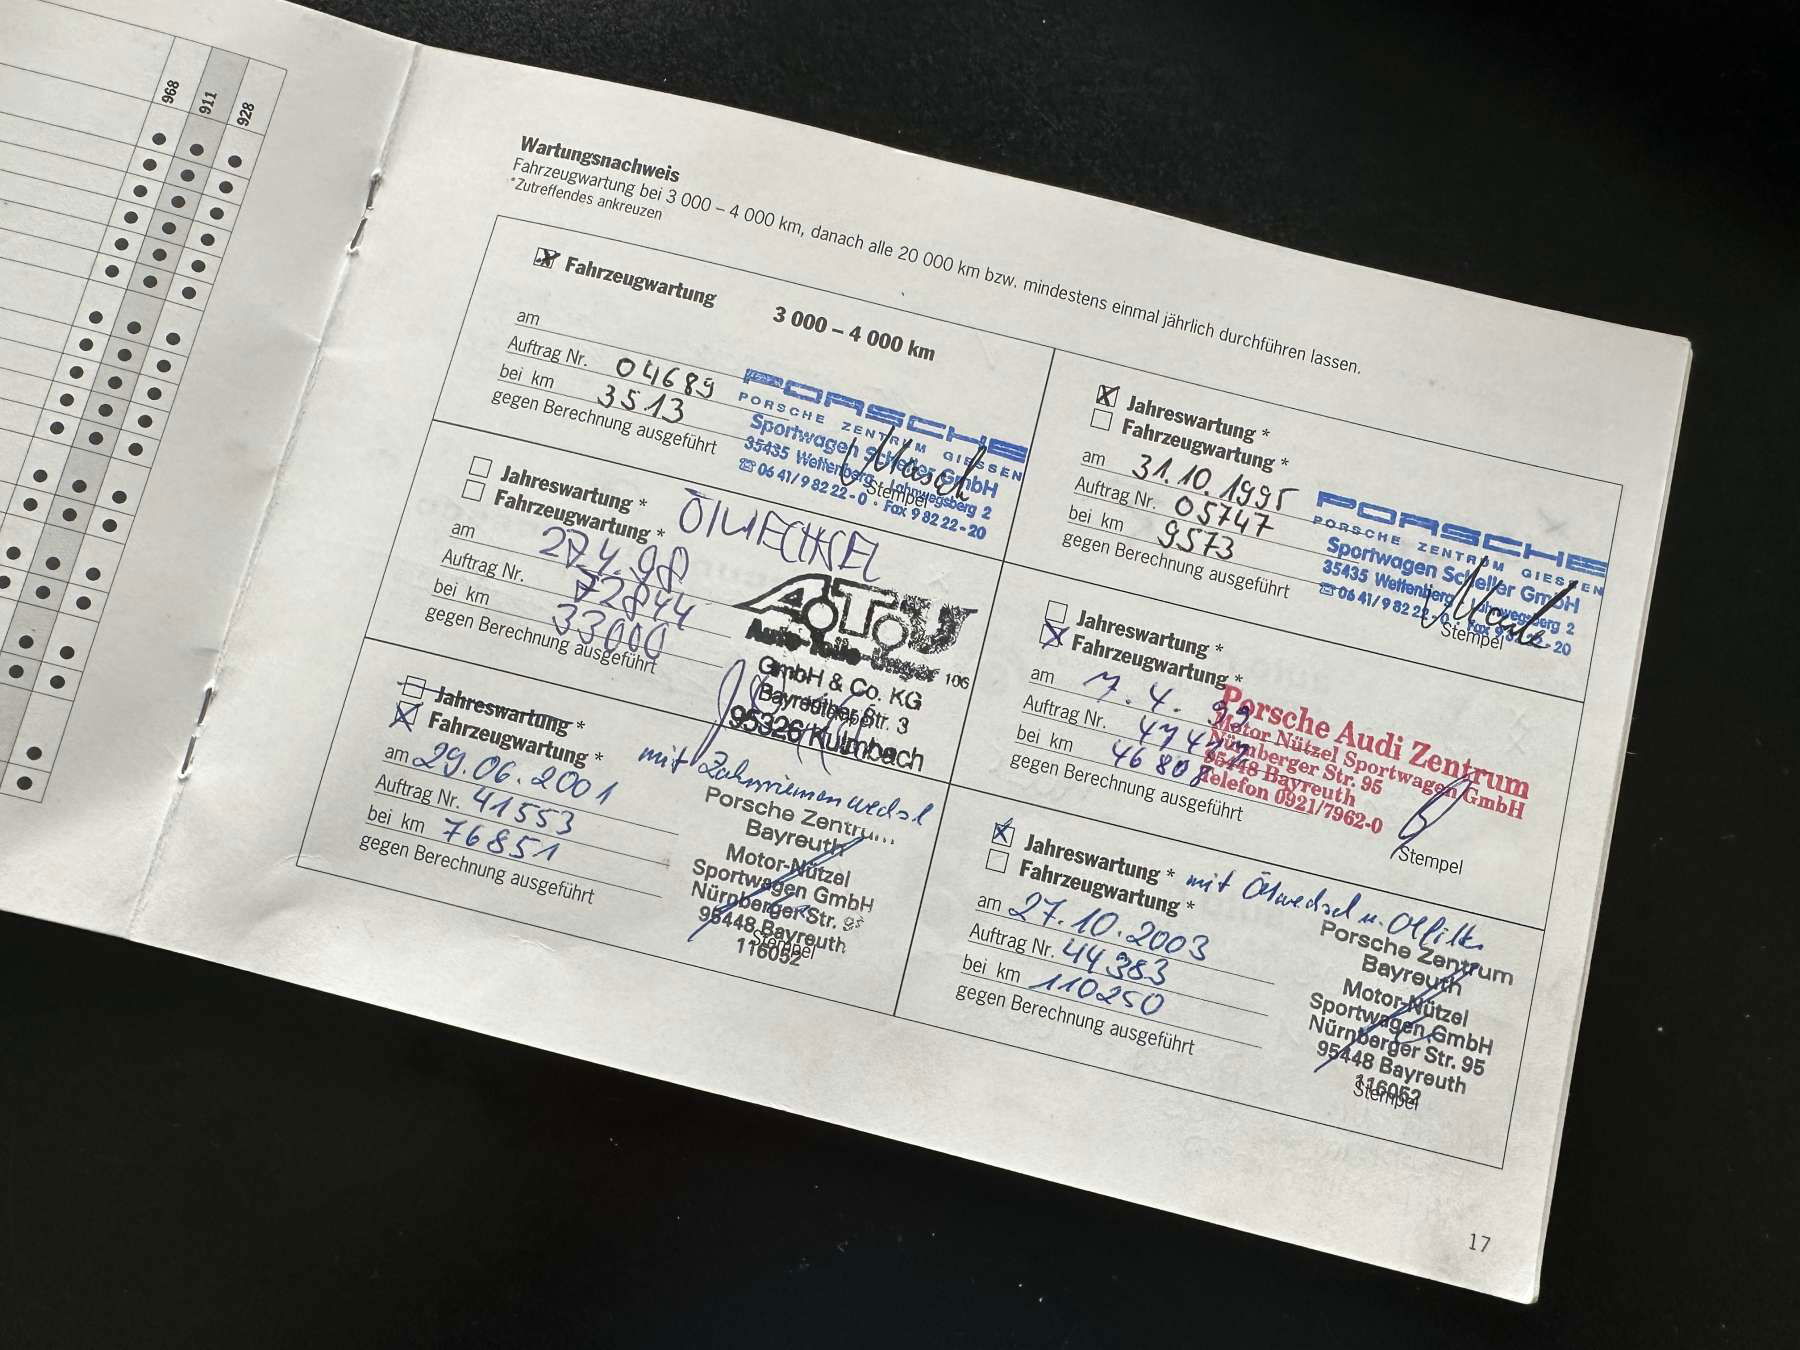 968
911
928
Wartungsnachweis
Fahrzeugwartung bei 3 000 – 4 000 km, danach alle 20 000 km bzw. mindestens einmal jährlich durchführen lassen.
*Zutreffendes ankreuzen
Fahrzeugwartung
3 000 – 4 000 km
am
Auftrag Nr. 04689
bei km 3513
gegen Berechnung ausgeführt
PORSCHE
PORSCHE ZENTRUM GIESSEN
Sportwagen Scheller GmbH
35435 Wettenberg · Lahnwegsberg 2
☎ 06 41/9 82 22-0 · Fax 9 82 22-20
Stempel
Jahreswartung *
Fahrzeugwartung *
am 31.10.1995
Auftrag Nr. 05747
bei km 9573
gegen Berechnung ausgeführt
PORSCHE
PORSCHE ZENTRUM GIESSEN
Sportwagen Scheller GmbH
35435 Wettenberg · Lahnwegsberg 2
☎ 06 41/9 82 22-0 · Fax 9 82 22-20
Stempel
Jahreswartung *
Fahrzeugwartung *
ÖLWECHSEL
am 27.4.98
Auftrag Nr. 72844
bei km 33000
gegen Berechnung ausgeführt
A.T.U
Auto-Teile-Unger 106
GmbH & Co. KG
Bayreuther Str. 3
95326 Kulmbach
Jahreswartung *
Fahrzeugwartung *
am 7.4.99
Auftrag Nr.
bei km 46808
gegen Berechnung ausgeführt
Porsche Audi Zentrum
Motor Nützel Sportwagen GmbH
Nürnberger Str. 95
95448 Bayreuth
Telefon 0921/7962-0
Stempel
Jahreswartung *
Fahrzeugwartung *
mit Zahnriemenwechsel
am 29.06.2001
Auftrag Nr. 41553
bei km 76851
gegen Berechnung ausgeführt
Porsche Zentrum
Bayreuth
Motor-Nützel
Sportwagen GmbH
Nürnberger Str. 95
95448 Bayreuth
116052
Stempel
Jahreswartung *
Fahrzeugwartung *
mit Ölwechsel u. Ölfilter
am 27.10.2003
Auftrag Nr. 44383
bei km 110250
gegen Berechnung ausgeführt
Porsche Zentrum
Bayreuth
Motor-Nützel
Sportwagen GmbH
Nürnberger Str. 95
95448 Bayreuth
116052
Stempel
17